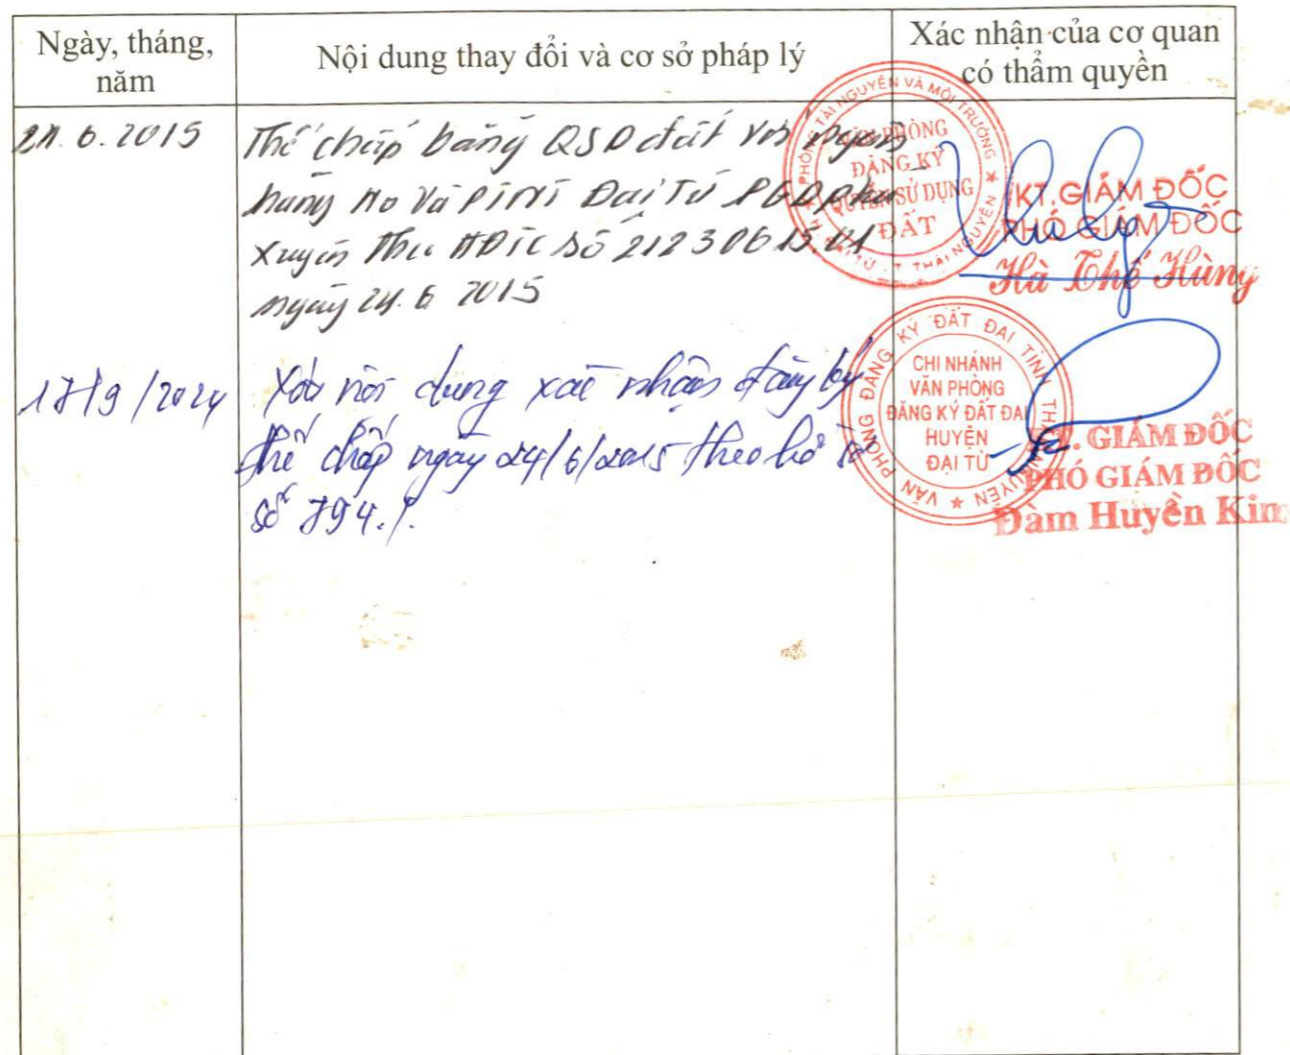 Ngày, tháng, năm
Nội dung thay đổi và cơ sở pháp lý
Xác nhận của cơ quan có thẩm quyền
24.6.2015
Thế chấp bằng QSD đất với Ngân
hàng No và PTNT Đại Từ PGD Phú
Xuyên theo HĐTC số 21230615.01
ngày 24.6 2015
PHÒNG TÀI NGUYÊN VÀ MÔI TRƯỜNG
VĂN PHÒNG
ĐĂNG KÝ
QUYỀN SỬ DỤNG
ĐẤT
T. THÁI NGUYÊN
KT. GIÁM ĐỐC
PHÓ GIÁM ĐỐC
Hà Thế Hùng
17/9/2024
Xóa nội dung xác nhận đăng ký
thế chấp ngày 24/6/2015 theo hồ sơ
số 794.
VĂN PHÒNG ĐĂNG KÝ ĐẤT ĐAI TỈNH THÁI NGUYÊN
CHI NHÁNH
VĂN PHÒNG
ĐĂNG KÝ ĐẤT ĐAI
HUYỆN
ĐẠI TỪ
GIÁM ĐỐC
PHÓ GIÁM ĐỐC
Đàm Huyền Kim